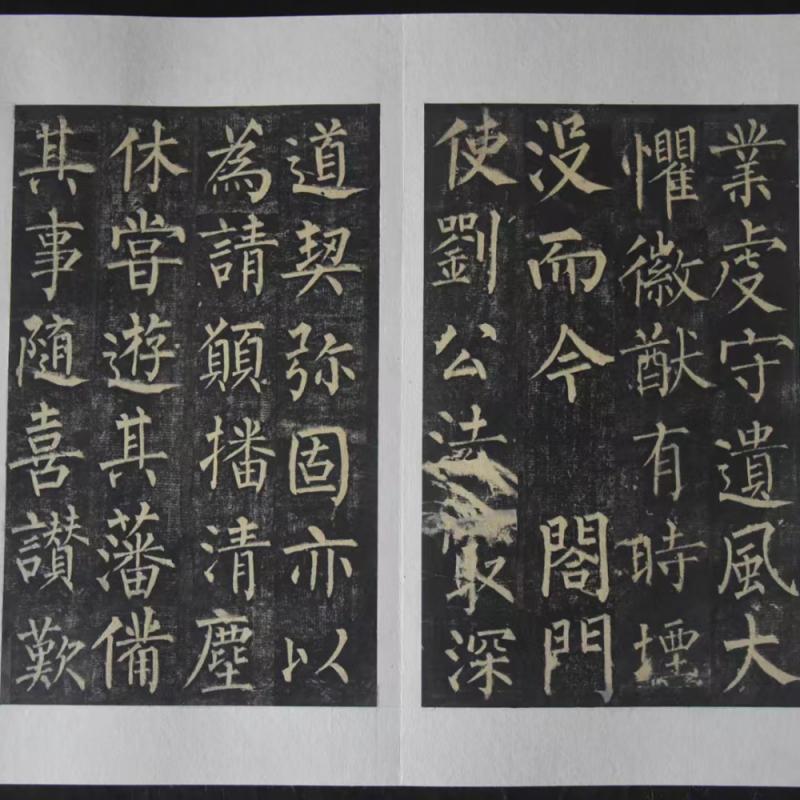 業虔守遺風大
懼徽猷有時堙
没而今閤門
使劉公法深
道契弥固亦以
為請願播清塵
休嘗遊其藩備
其事随喜讚歎